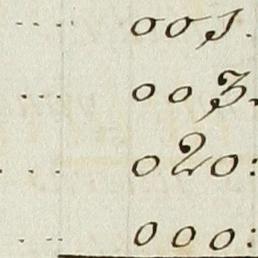 ... 001.
... 003.
... 020:
... 000: